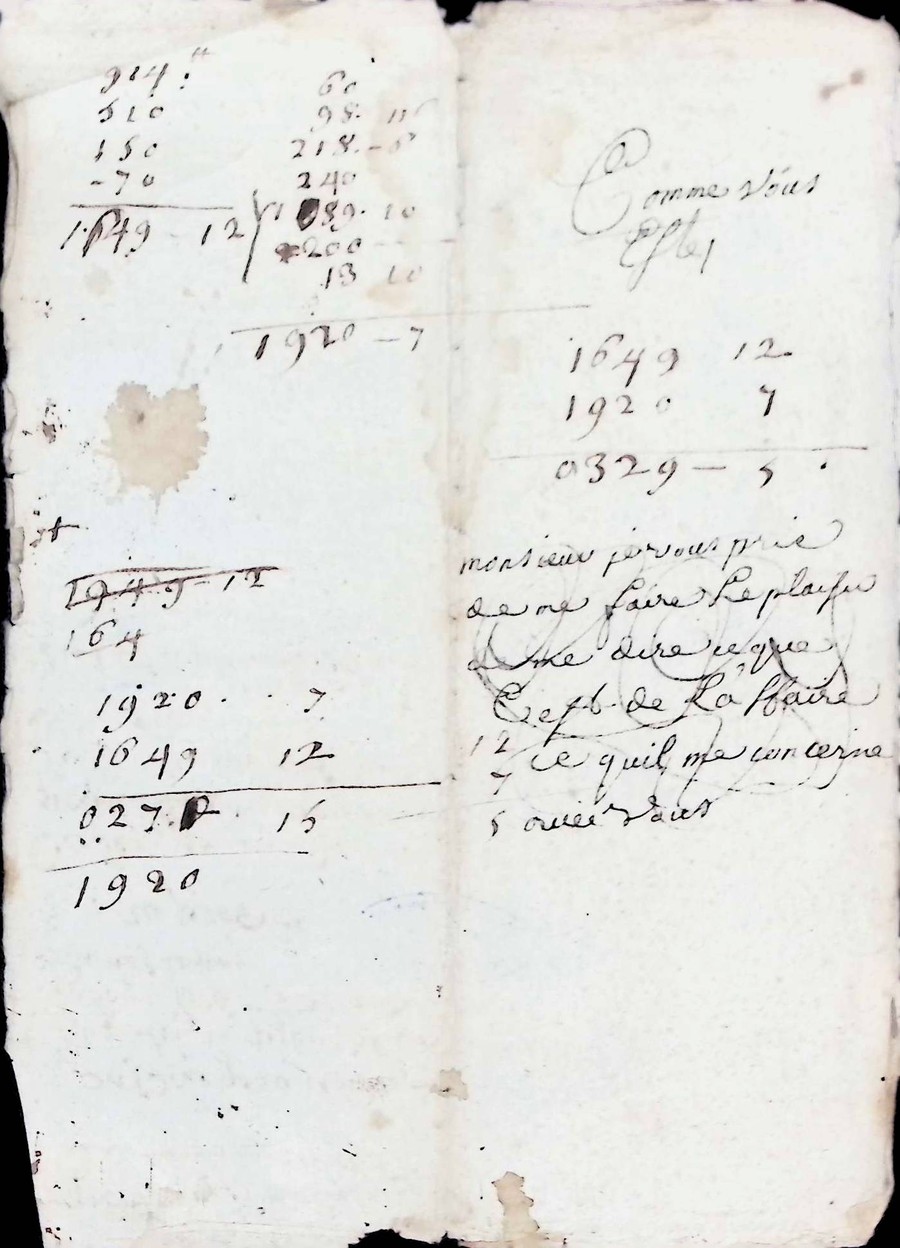 914 ᵗᵗ
510
150
-70
1649 - 12
60
98.
218. - 6
240
1089. 10
200
13 10
1920 - 7
1949 - 12
164
1920 . . 7
1649 12
027 15
1920
Comme vous
Estes
1649 12
1920 7
0329 - 5 .
monsieur je vous prie
de me faire Le plaisir
de me dire ce que
C'est de La ffaire
12 ce quil me concerne
7
5 vous